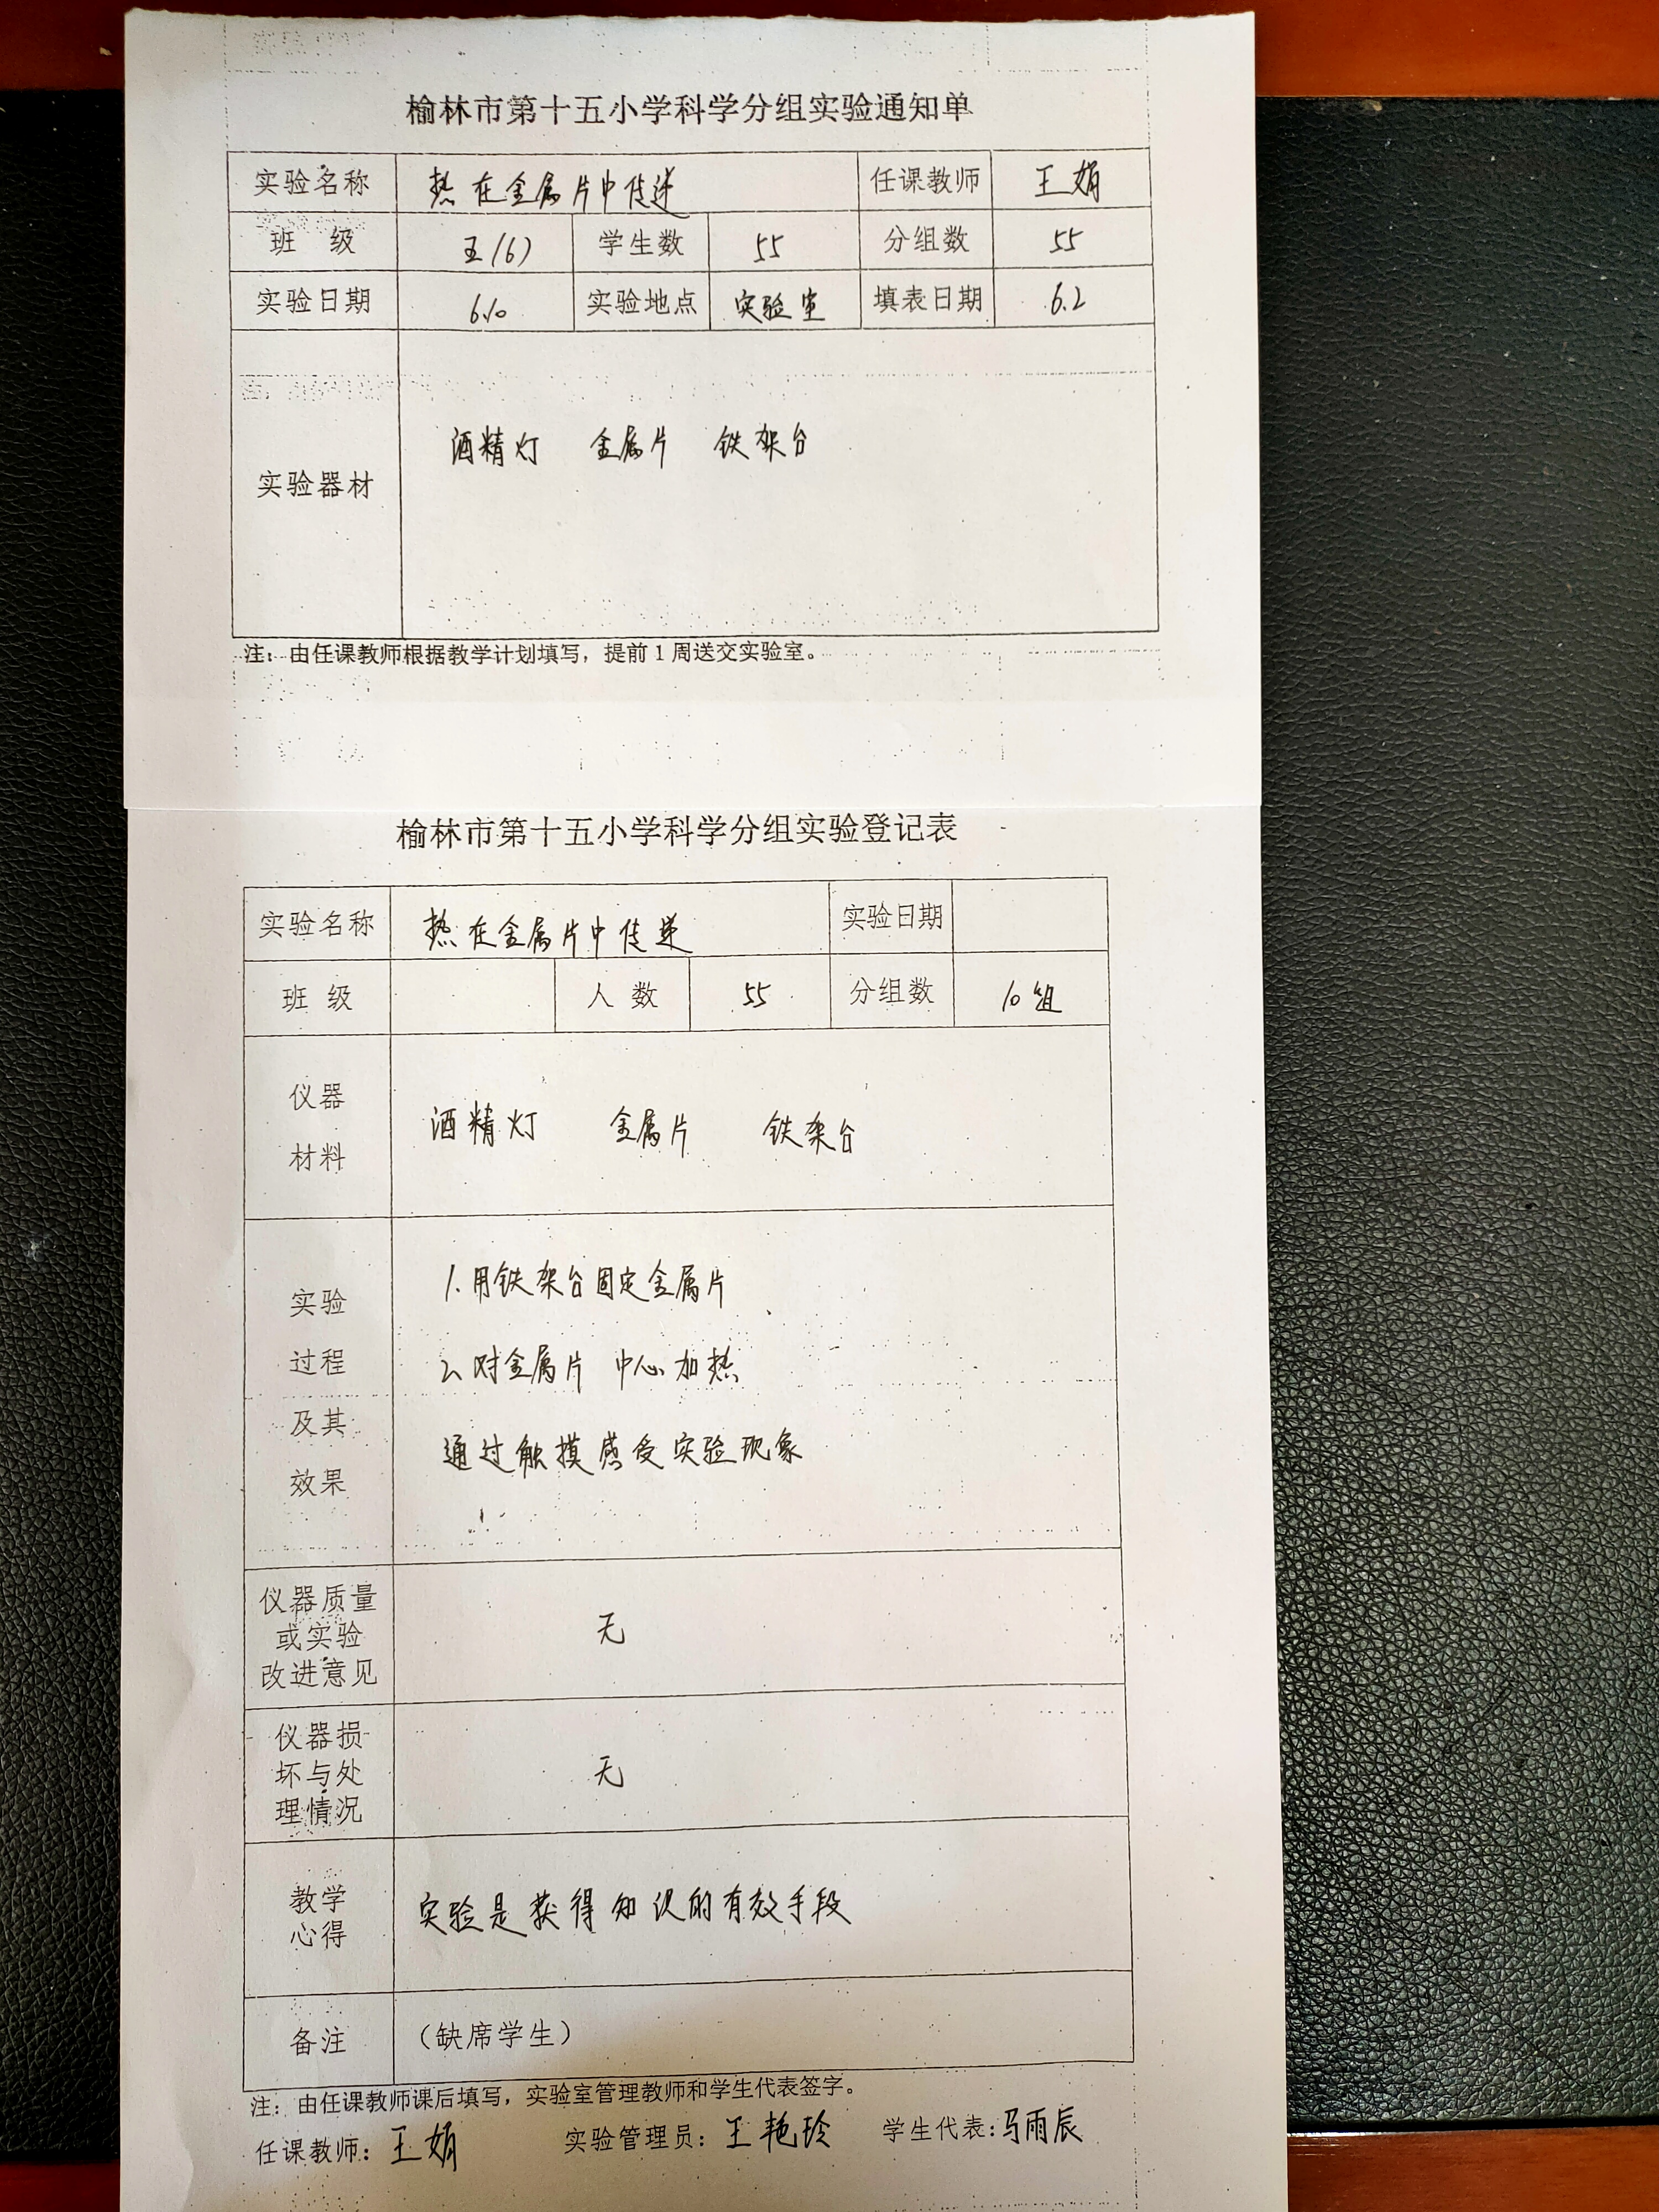 榆林市第十五小学科学分组实验通知单
实验名称 热在金属片中传递 任课教师 王娟
班 级 五(6) 学生数 55 分组数 55
实验日期 6.10 实验地点 实验室 填表日期 6.2
实验器材 酒精灯 金属片 铁架台
注：由任课教师根据教学计划填写，提前1周送交实验室。
榆林市第十五小学科学分组实验登记表
实验名称 热在金属片中传递 实验日期
班 级 人 数 55 分组数 10组
仪器
材料
酒精灯 金属片 铁架台
实验
过程
及其
效果
1.用铁架台固定金属片
2、对金属片中心加热
通过触摸感受实验现象
仪器质量
或实验
改进意见
无
仪器损
坏与处
理情况
无
教学
心得
实验是获得知识的有效手段
备注 （缺席学生）
注：由任课教师课后填写，实验室管理教师和学生代表签字。
任课教师：王娟 实验管理员：王艳玲 学生代表:马雨辰